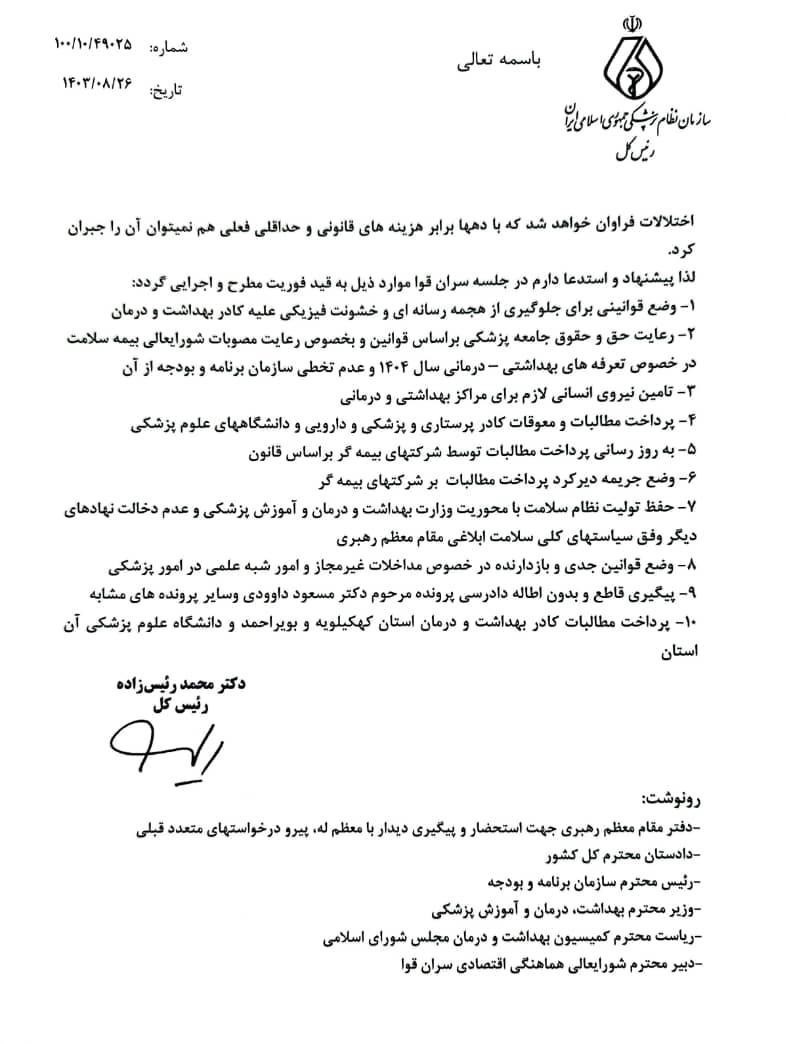 باسمه تعالی
سازمان نظام پزشکی جمهوری اسلامی ایران
رئیس کل
شماره: ۱۰۰/۱۰/۴۹۰۲۵
تاریخ: ۱۴۰۳/۰۸/۲۶
اختلالات فراوان خواهد شد که با دهها برابر هزینه های قانونی و حداقلی فعلی هم نمیتوان آن را جبران
کرد.
لذا پیشنهاد و استدعا دارم در جلسه سران قوا موارد ذیل به قید فوریت مطرح و اجرایی گردد:
۱- وضع قوانینی برای جلوگیری از هجمه رسانه ای و خشونت فیزیکی علیه کادر بهداشت و درمان
۲- رعایت حق و حقوق جامعه پزشکی براساس قوانین و بخصوص رعایت مصوبات شورایعالی بیمه سلامت
در خصوص تعرفه های بهداشتی – درمانی سال ۱۴۰۴ و عدم تخطی سازمان برنامه و بودجه از آن
۳- تامین نیروی انسانی لازم برای مراکز بهداشتی و درمانی
۴- پرداخت مطالبات و معوقات کادر پرستاری و پزشکی و دارویی و دانشگاههای علوم پزشکی
۵- به روز رسانی پرداخت مطالبات توسط شرکتهای بیمه گر براساس قانون
۶- وضع جریمه دیرکرد پرداخت مطالبات بر شرکتهای بیمه گر
۷- حفظ تولیت نظام سلامت با محوریت وزارت بهداشت و درمان و آموزش پزشکی و عدم دخالت نهادهای
دیگر وفق سیاستهای کلی سلامت ابلاغی مقام معظم رهبری
۸- وضع قوانین جدی و بازدارنده در خصوص مداخلات غیرمجاز و امور شبه علمی در امور پزشکی
۹- پیگیری قاطع و بدون اطاله دادرسی پرونده مرحوم دکتر مسعود داوودی وسایر پرونده های مشابه
۱۰- پرداخت مطالبات کادر بهداشت و درمان استان کهکیلویه و بویراحمد و دانشگاه علوم پزشکی آن
استان
دکتر محمد رئیس‌زاده
رئیس کل
رونوشت:
-دفتر مقام معظم رهبری جهت استحضار و پیگیری دیدار با معظم له، پیرو درخواستهای متعدد قبلی
-دادستان محترم کل کشور
-رئیس محترم سازمان برنامه و بودجه
-وزیر محترم بهداشت، درمان و آموزش پزشکی
-ریاست محترم کمیسیون بهداشت و درمان مجلس شورای اسلامی
-دبیر محترم شورایعالی هماهنگی اقتصادی سران قوا